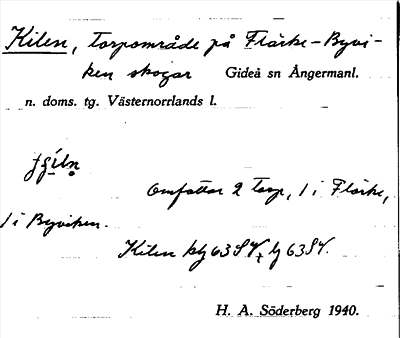 Kilen, torpområde på Flärke-Byvi-
ken skogar Gideå sn Ångermanl.
n. doms. tg. Västernorrlands l.
Omfattar 2 torp, 1 i Flärke,
1 i Byviken.
Kilen
H. A. Söderberg 1940.